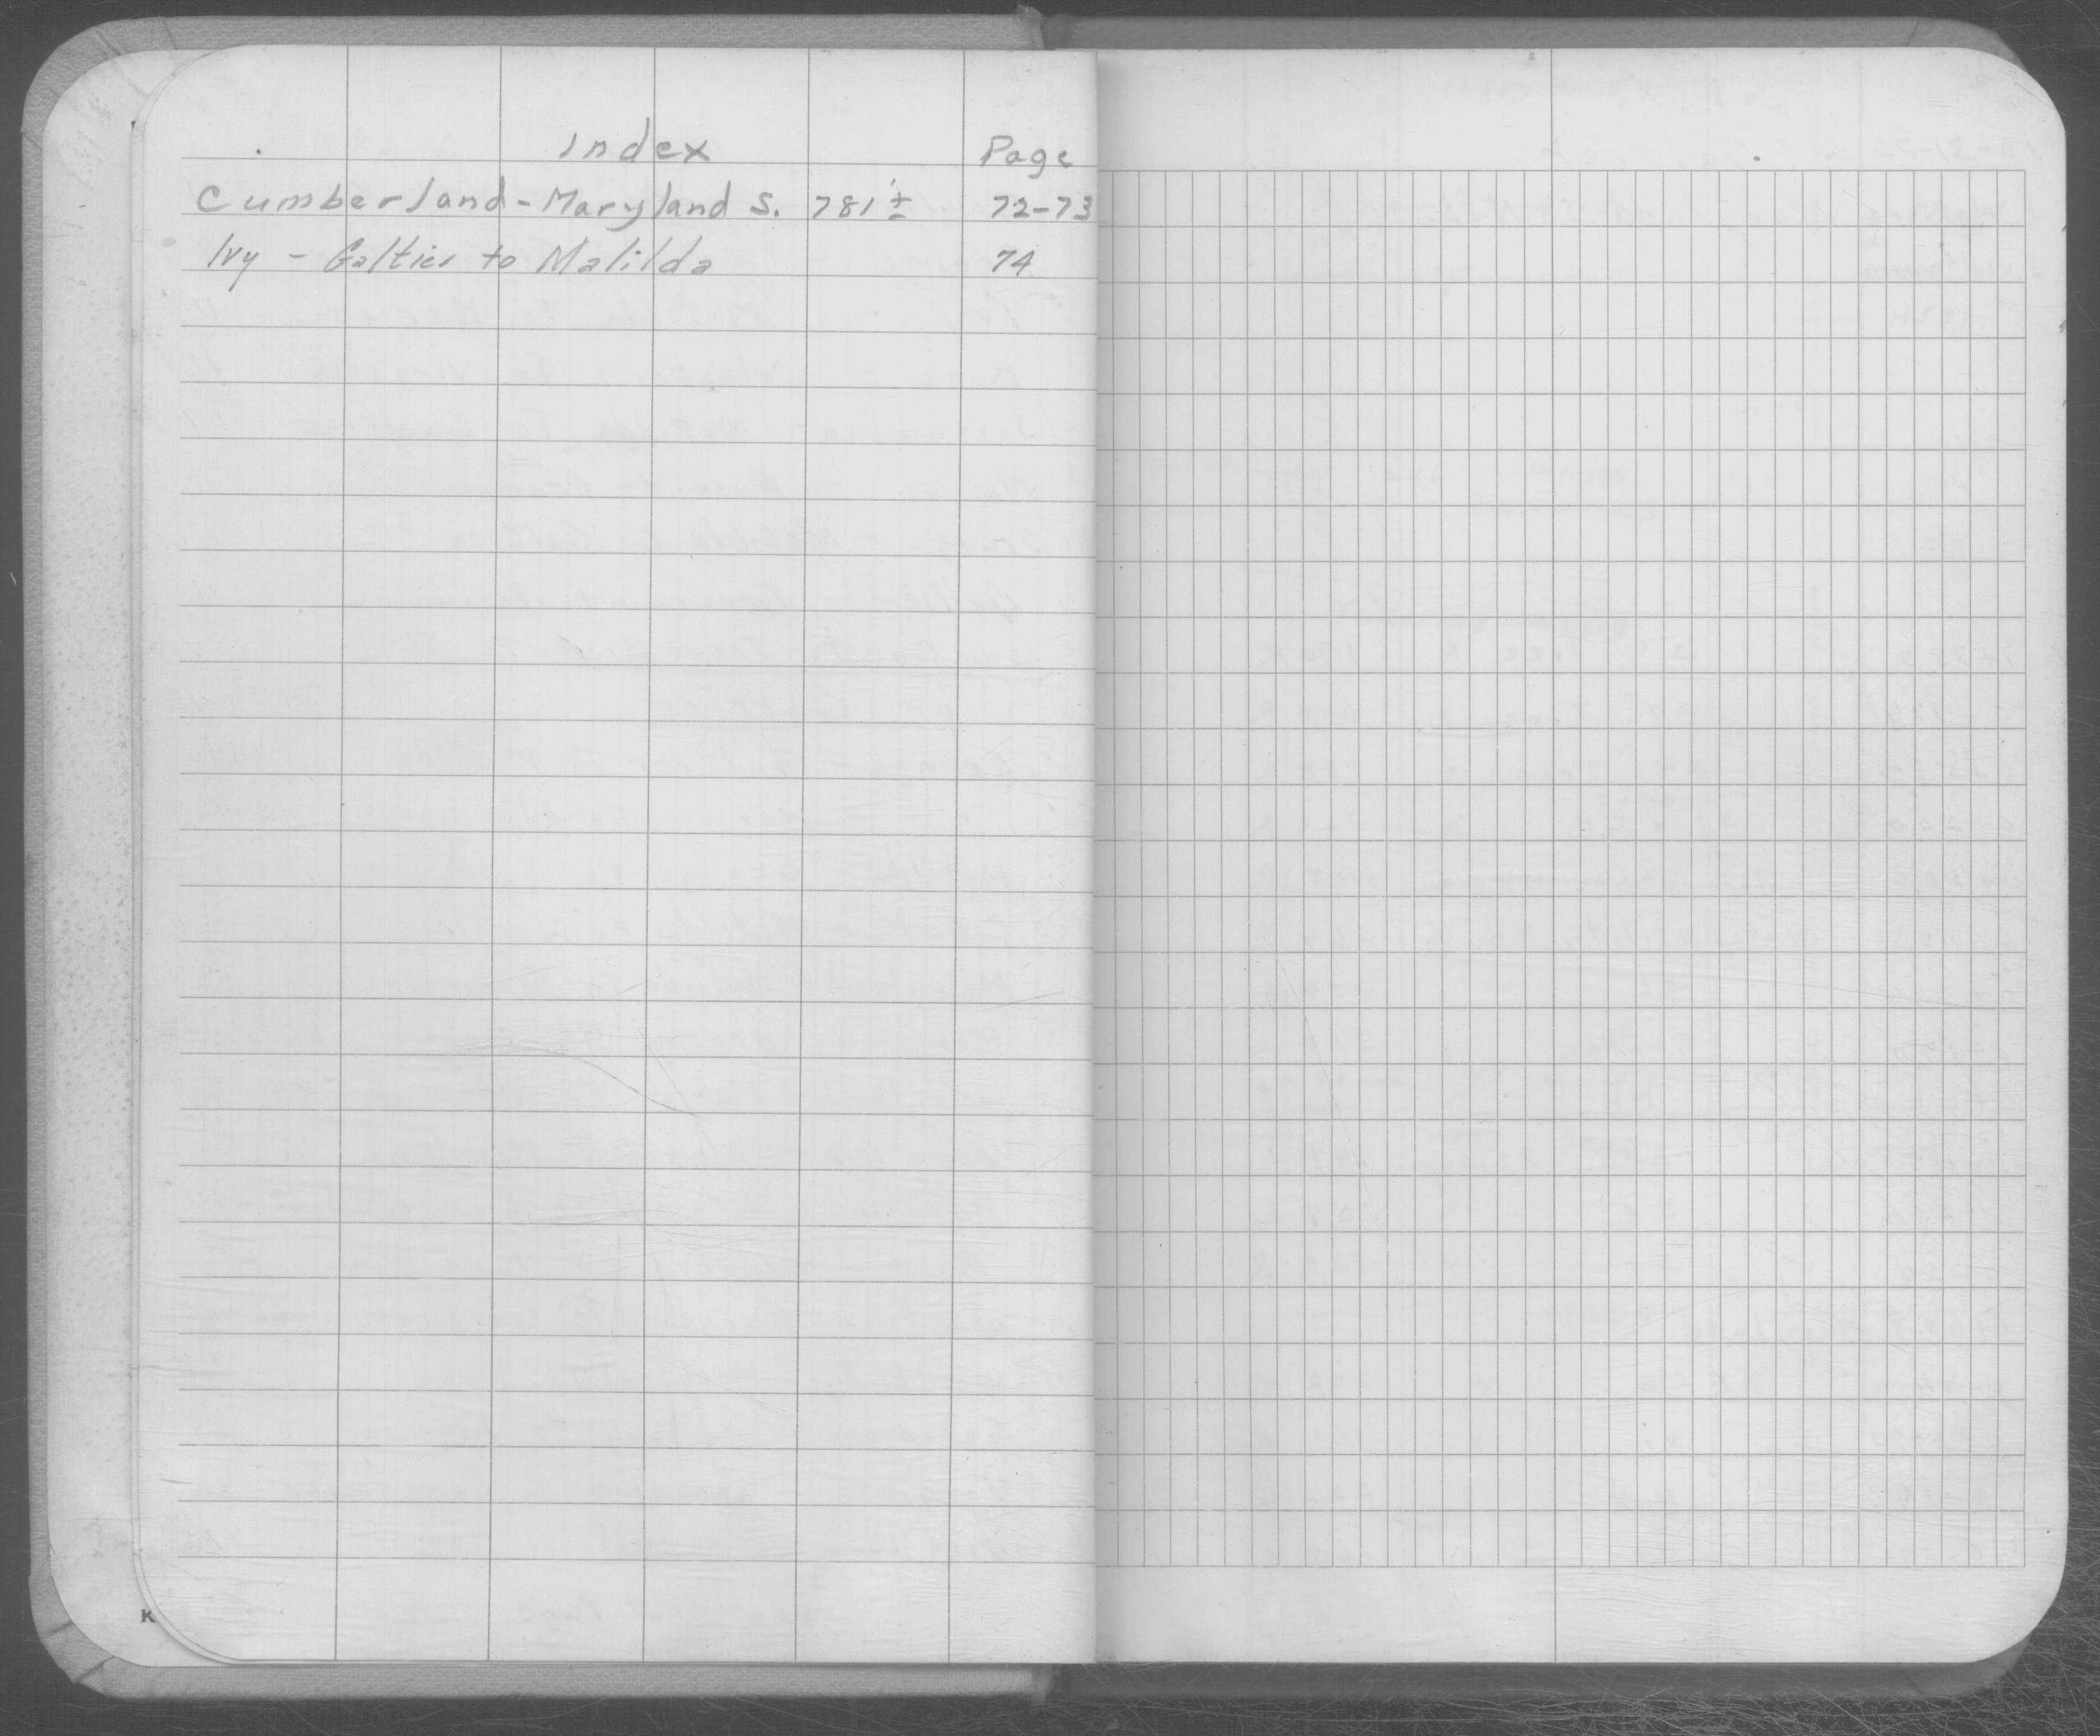 Index Page
Cumberland - Maryland S. 781'± 72-73
Ivy - Galtier to Matilda 74
K